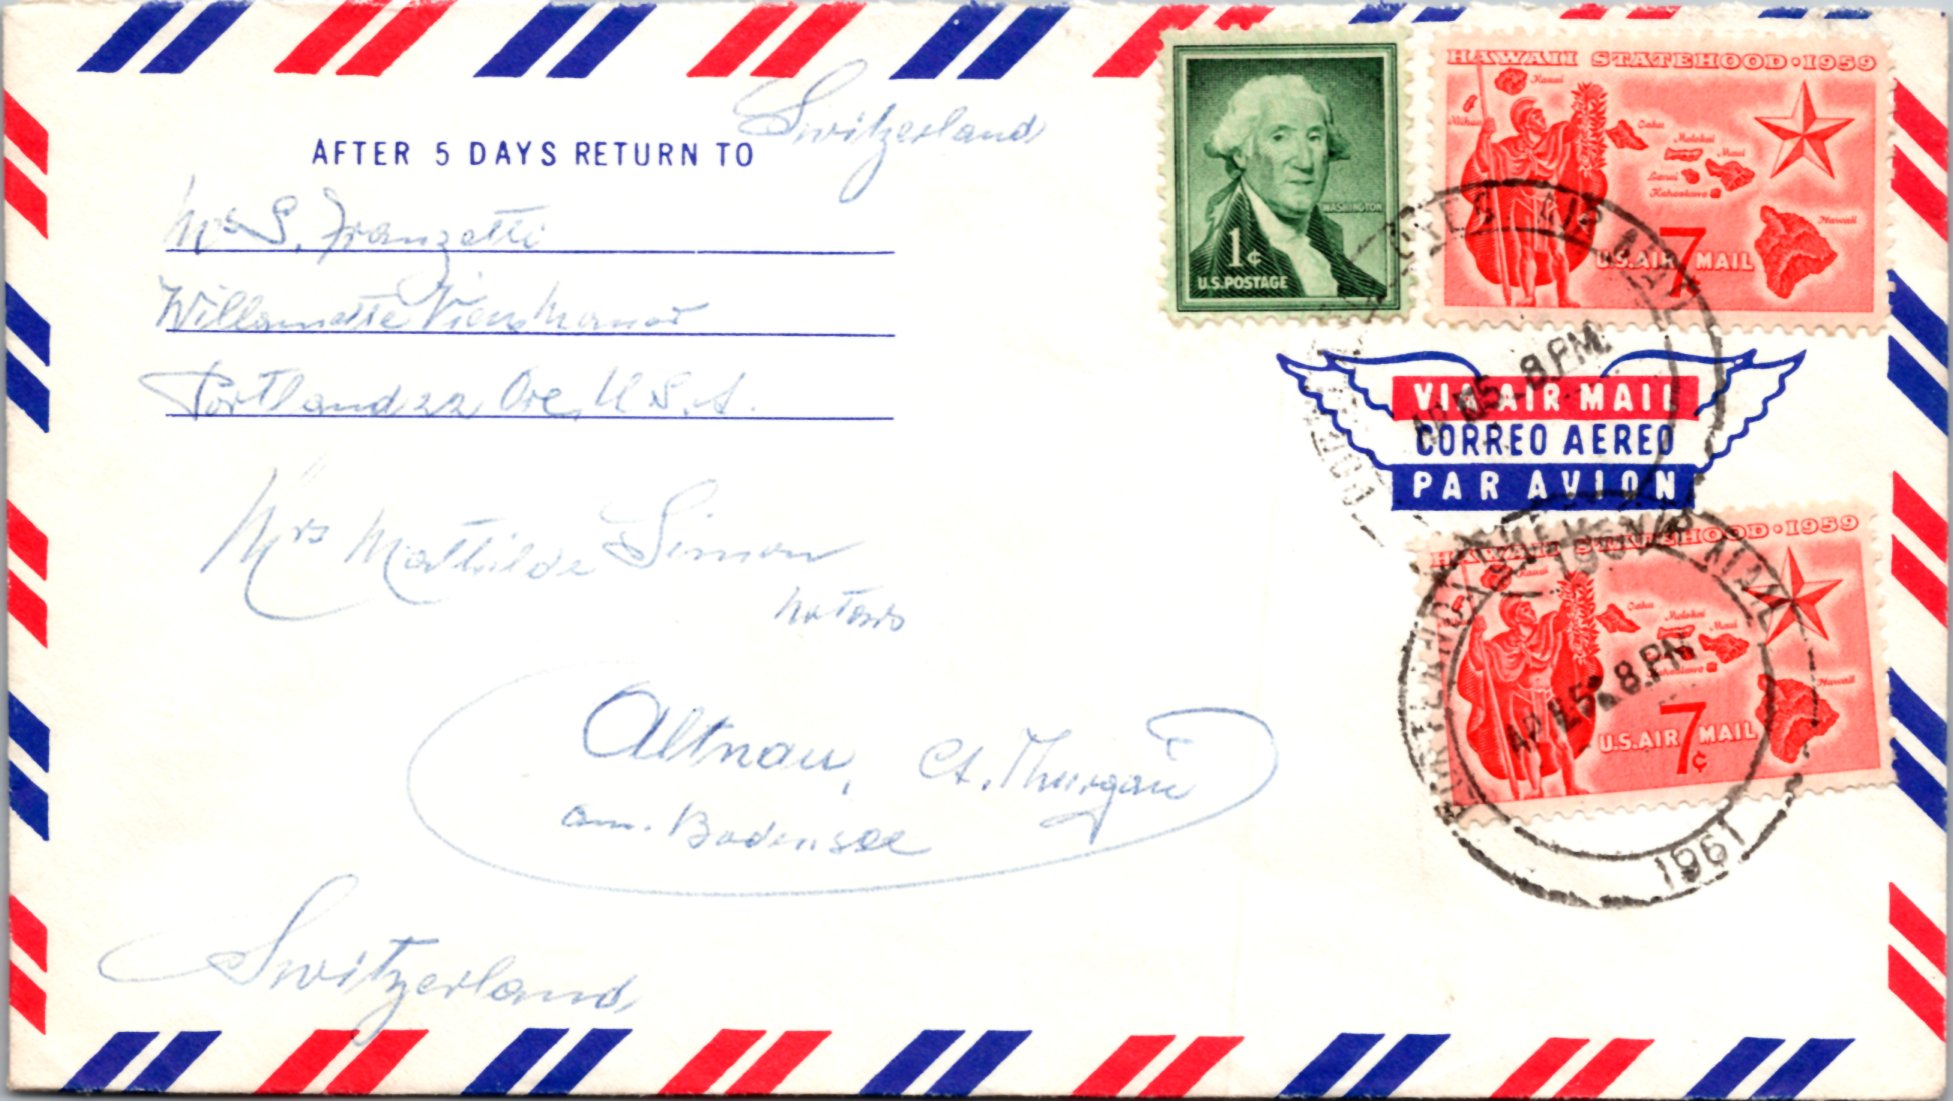 Switzerland
AFTER 5 DAYS RETURN TO
Mrs S. Franzetti
Willamette View Manor
Portland 22 Ore, U.S.A.
WASHINGTON
1¢
U.S. POSTAGE
HAWAII STATEHOOD • 1959
Kauai
Niihau
Oahu
Molokai
Maui
Lanai
Kahoolawe
Hawaii
7¢
U.S. AIR MAIL
AIR MAIL
AP 15 8 PM
1961
VIA AIR MAIL
CORREO AEREO
PAR AVION
Mrs Mathilde Simon
Notars
Altnau, Ct. Thurgau
am. Bodensee
Switzerland
HAWAII STATEHOOD • 1959
Oahu
Molokai
Maui
Hawaii
7¢
U.S. AIR MAIL
PORTLAND AIR MAIL
AP 15 8 PM
1961